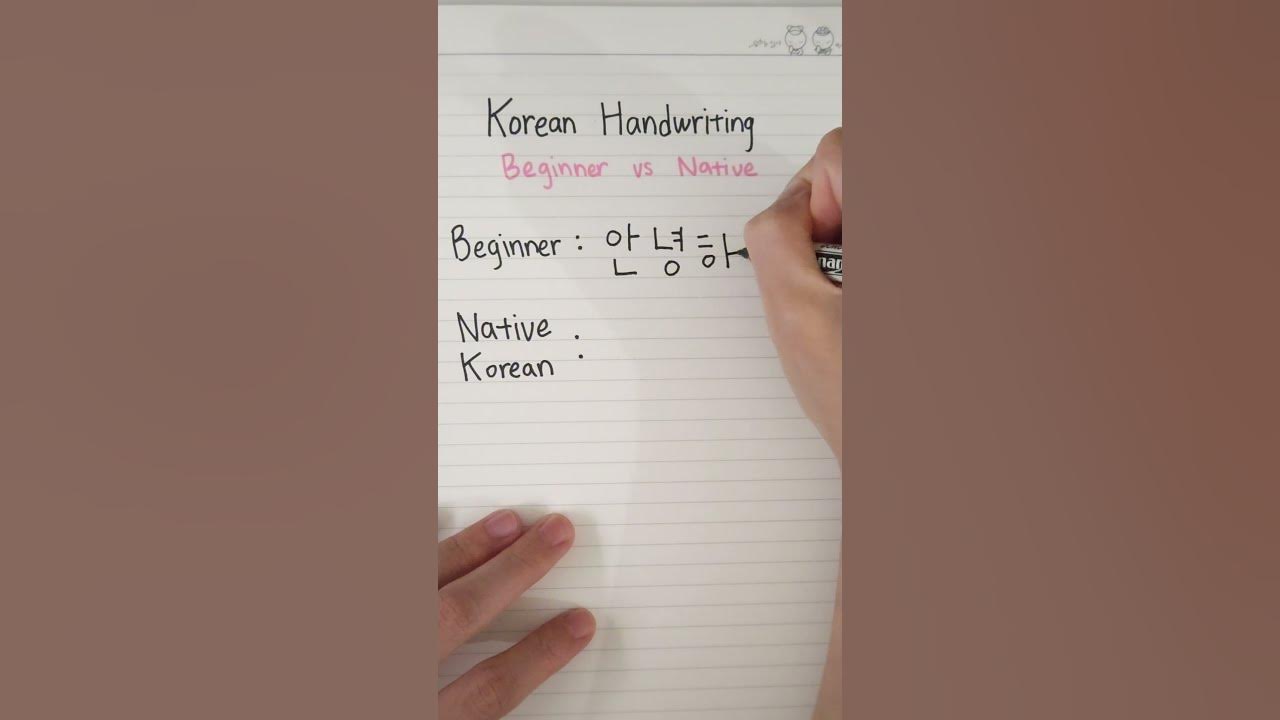 Korean Handwriting
Beginner vs Native
Beginner : 안녕하
Native :
Korean